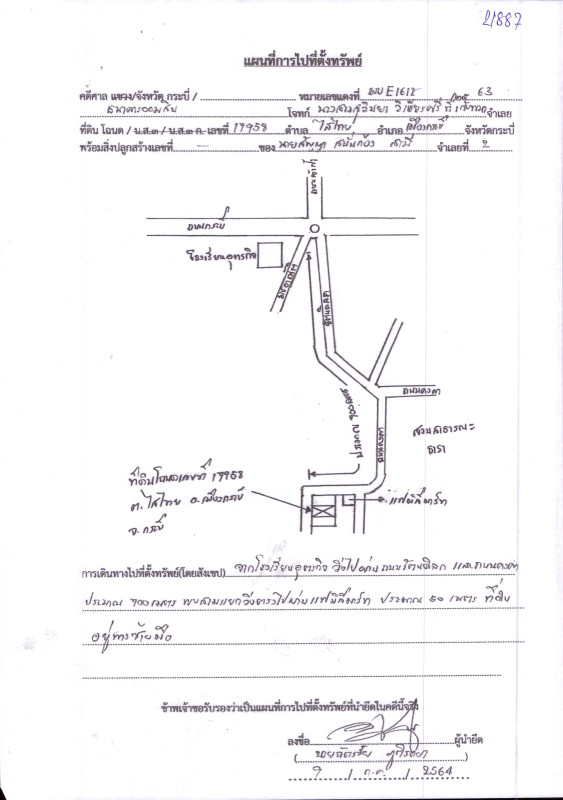 21887
แผนที่การไปที่ตั้งทรัพย์
คดีศาล แขวง/จังหวัด กระบี่ / หมายเลขแดงที่ ผบE1612 /25 63
ธนาคารออมสิน โจทก์ จำเลย
ที่ดิน โฉนด / น.ส.๓ / น.ส.๓ ก. เลขที่ 17958 ตำบล ไสไทย อำเภอ เมืองกระบี่ จังหวัดกระบี่
พร้อมสิ่งปลูกสร้างเลขที่ - ของ จำเลยที่ 2
ถนนกระบี่
โรงเรียนอุตรกิจ
ถนนคงคา
ถนนคงคา
สวนสาธารณะ
ธารา
ประมาณ 700 เมตร
ที่ดินโฉนดเลขที่ 17958
ต.ไสไทย อ.เมืองกระบี่
จ.กระบี่
แฟมิลี่มาร์ท
การเดินทางไปที่ตั้งทรัพย์(โดยสังเขป) จากโรงเรียนอุตรกิจ วิ่งไปผ่านถนน และถนนคงคา
ประมาณ 700 เมตร พบสามแยกวิ่งตรงไปผ่านแฟมิลี่มาร์ท ประมาณ 20 เมตร ที่ดิน
อยู่ทางซ้ายมือ
ข้าพเจ้าขอรับรองว่าเป็นแผนที่การไปที่ตั้งทรัพย์ที่นำยึดในคดีนี้จริง
ลงชื่อ ผู้นำยึด
7 / ก.ค. / 2564